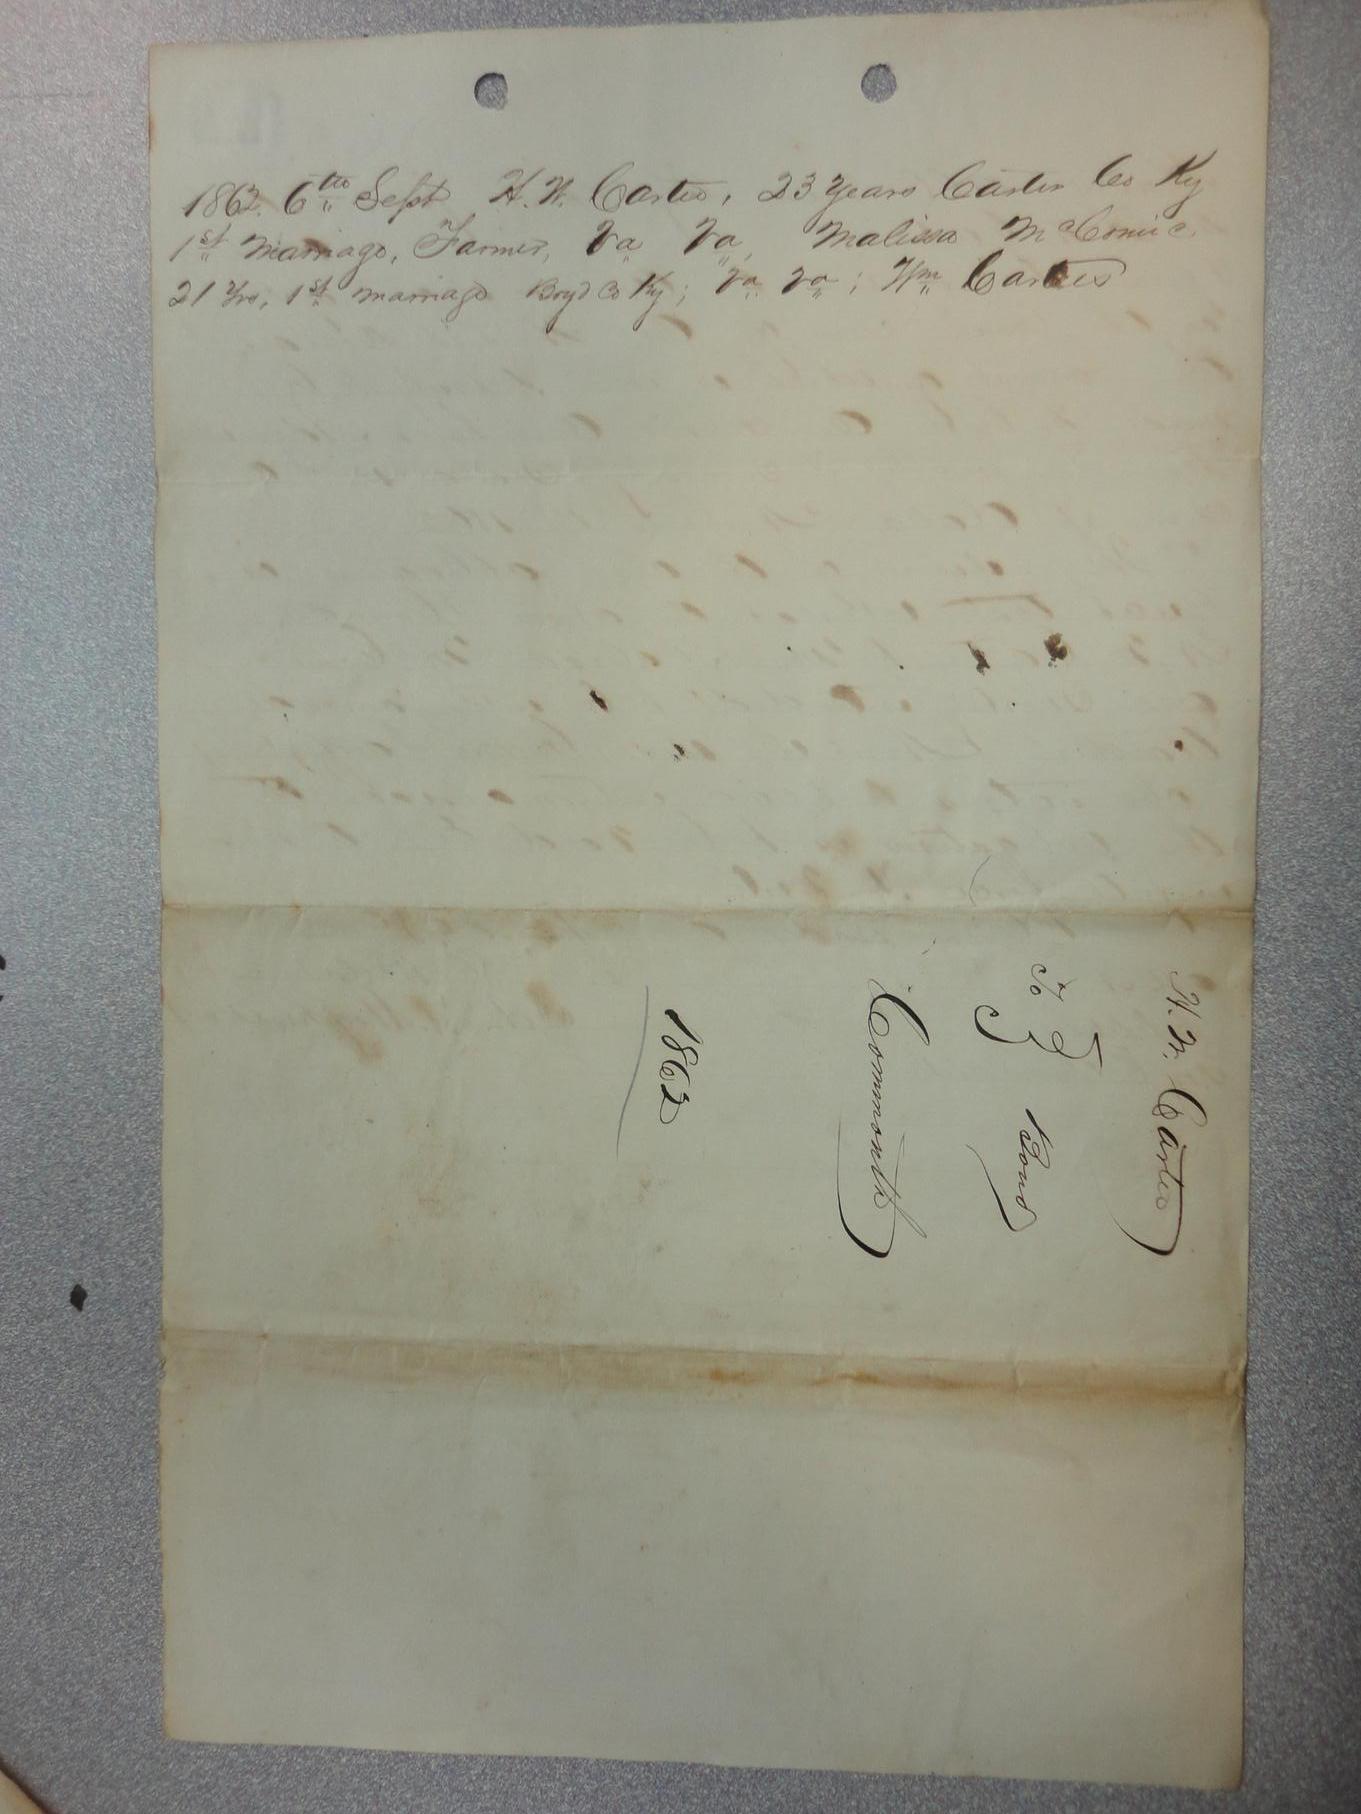 1862. 6th Sept H. W. Carter, 23 Years Carter Co Ky
1st Marriage, Farmer, Va Va, Malissa McComic.
21 Yrs, 1st marriage Boyd Co Ky; Va Va; Wm Carter
H. W. Carter
To } Bond
Commonth
1862